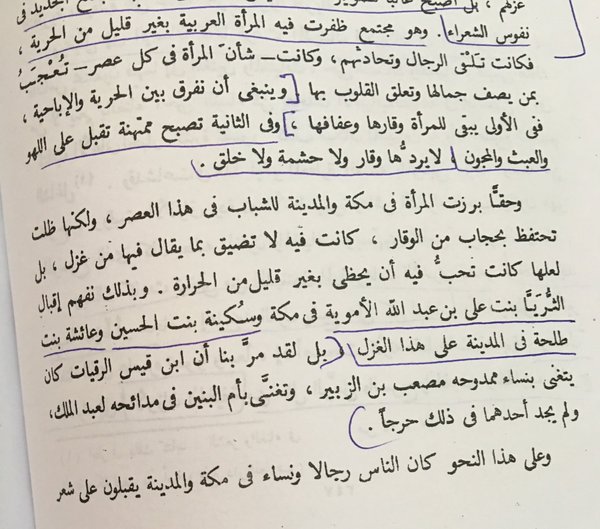 غزلهم ، بل أصبح غالباً
نفوس الشعراء . وهو مجتمع ظفرت فيه المرأة العربية بغير قليل من الحرية ،
فكانت تَلْقى الرجال وتحادثهم ، وكانت – شأن المرأة فى كل عصر – تُعْجَبُ
بمن يصف جمالها وتعلق القلوب بها . وينبغى أن نفرق بين الحرية والإباحية ،
ففى الأولى يبقى للمرأة وقارها وعفافها ، وفى الثانية تصبح ممتهنة تقبل على اللهو
والعبث والمجون ، لا يردُّها وقار ولا حشمة ولا خلق .
وحقًّا برزت المرأة فى مكة والمدينة للشباب فى هذا العصر ، ولكنها ظلت
تحتفظ بحجاب من الوقار ، كانت فيه لا تضيق بما يقال فيها من غزل ، بل
لعلها كانت تحبُّ فيه أن يحظى بغير قليل من الحرارة . وبذلك نفهم إقبال
الثُّرَيَّا بنت على بن عبد الله الأموية فى مكة وسُكينة بنت الحسين وعائشة بنت
طلحة فى المدينة على هذا الغزل ، بل لقد مرَّ بنا أن ابن قيس الرقيات كان
يتغنى بنساء ممدوحه مصعب بن الزبير ، وتغنَّى بأم البنين فى مدائحه لعبد الملك،
ولم يجد أحدهما فى ذلك حرجاً .
وعلى هذا النحو كان الناس رجالا ونساء فى مكة والمدينة يقبلون على شعر